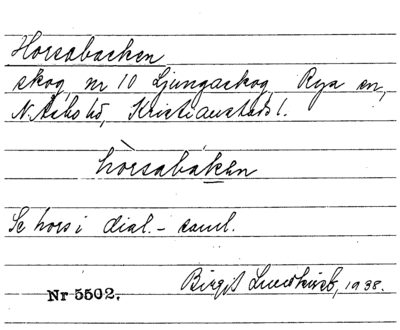 Horsabacken
skog, nr 10 Ljungaskog, Rya sn,
N. Åsbo hd, Kristianstads l.
hòrsabáken
Se hors i dial. - saml.
Birgit Lundkvist, 1938.
Nr 5502.